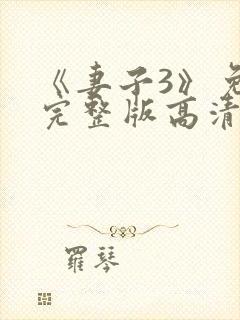 《妻子3》免
完整版高清
羅琴